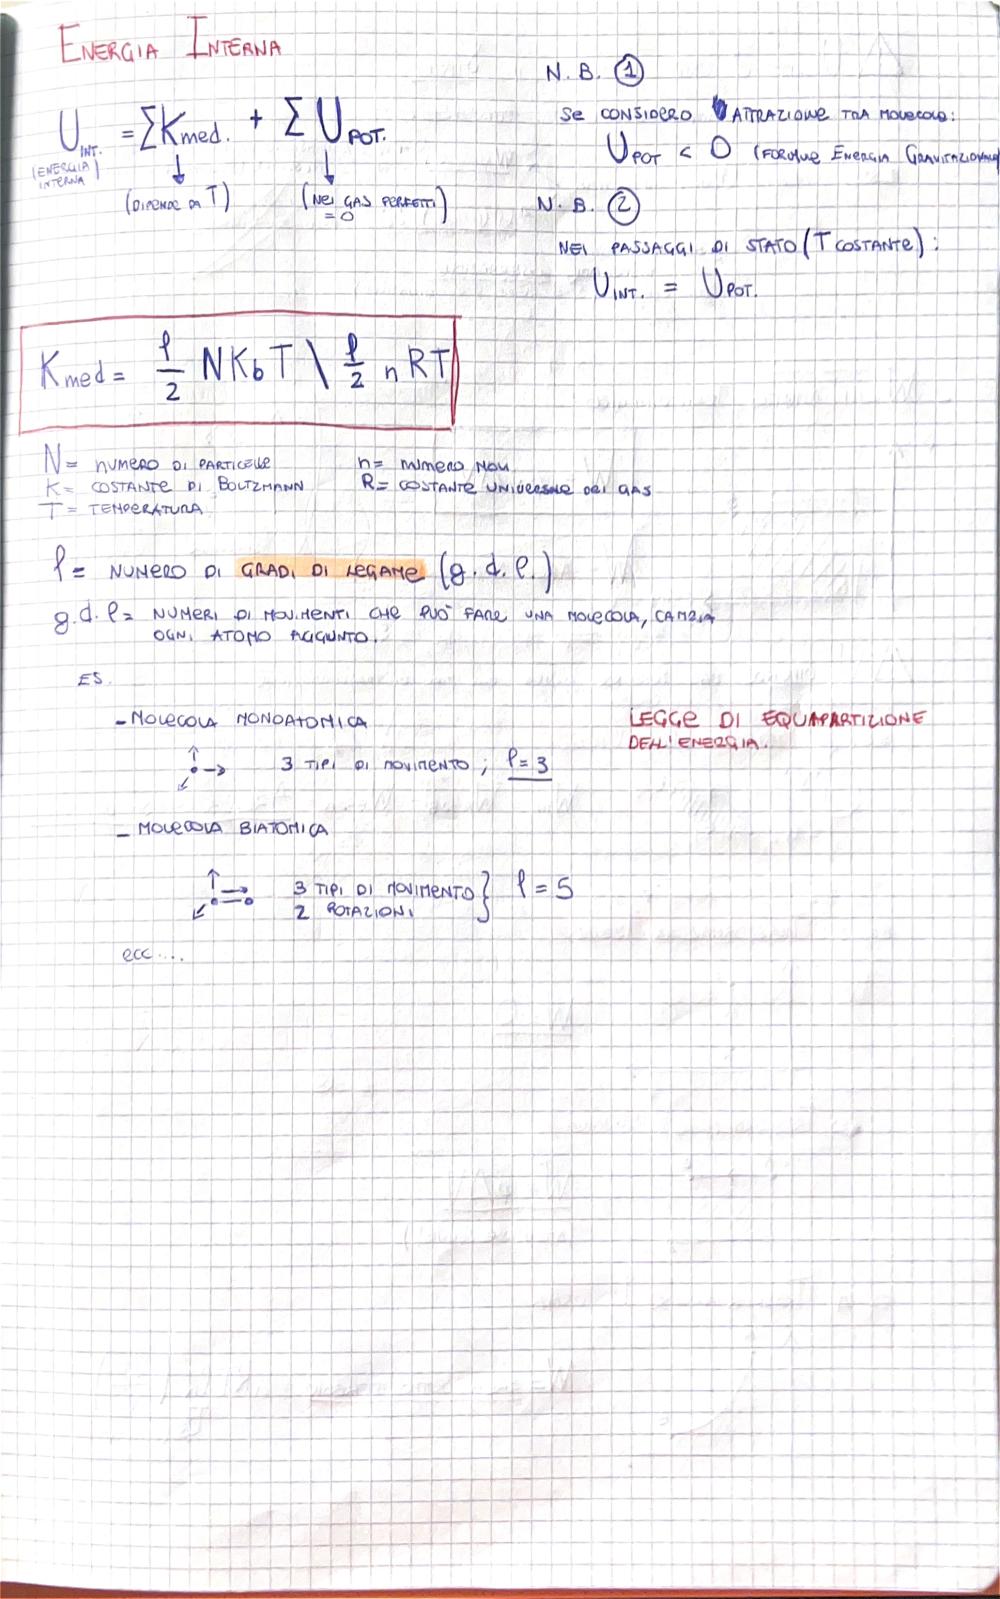 ENERGIA INTERNA
U INT. = ΣKmed. + Σ U POT.
(ENERGIA INTERNA)
(DIPENDE DA T)
(NEI GAS PERFETTI = 0)
N.B. ①
SE CONSIDERO ATTRAZIONE TRA MOLECOLE:
U POT < 0 (FORMULE ENERGIA GRAVITAZIONALE)
N.B. ②
NEI PASSAGGI DI STATO (T COSTANTE):
U INT. = U POT.
Kmed = l/2 NKbT \ l/2 nRT
N = NUMERO DI PARTICELLE
K = COSTANTE DI BOLTZMANN
T = TEMPERATURA
n = NUMERO MOLI
R = COSTANTE UNIVERSALE DEI GAS
l = NUMERO DI GRADI DI LEGAME (g.d.l.)
g.d.l = NUMERI DI MOVIMENTI CHE PUÒ FARE UNA MOLECOLA, CAMBIA
OGNI ATOMO AGGIUNTO.
ES.
- MOLECOLA MONOATOMICA
3 TIPI DI MOVIMENTO; l = 3
LEGGE DI EQUAPARTIZIONE
DELL'ENERGIA.
- MOLECOLA BIATOMICA
3 TIPI DI MOVIMENTO
2 ROTAZIONI } l = 5
ecc....